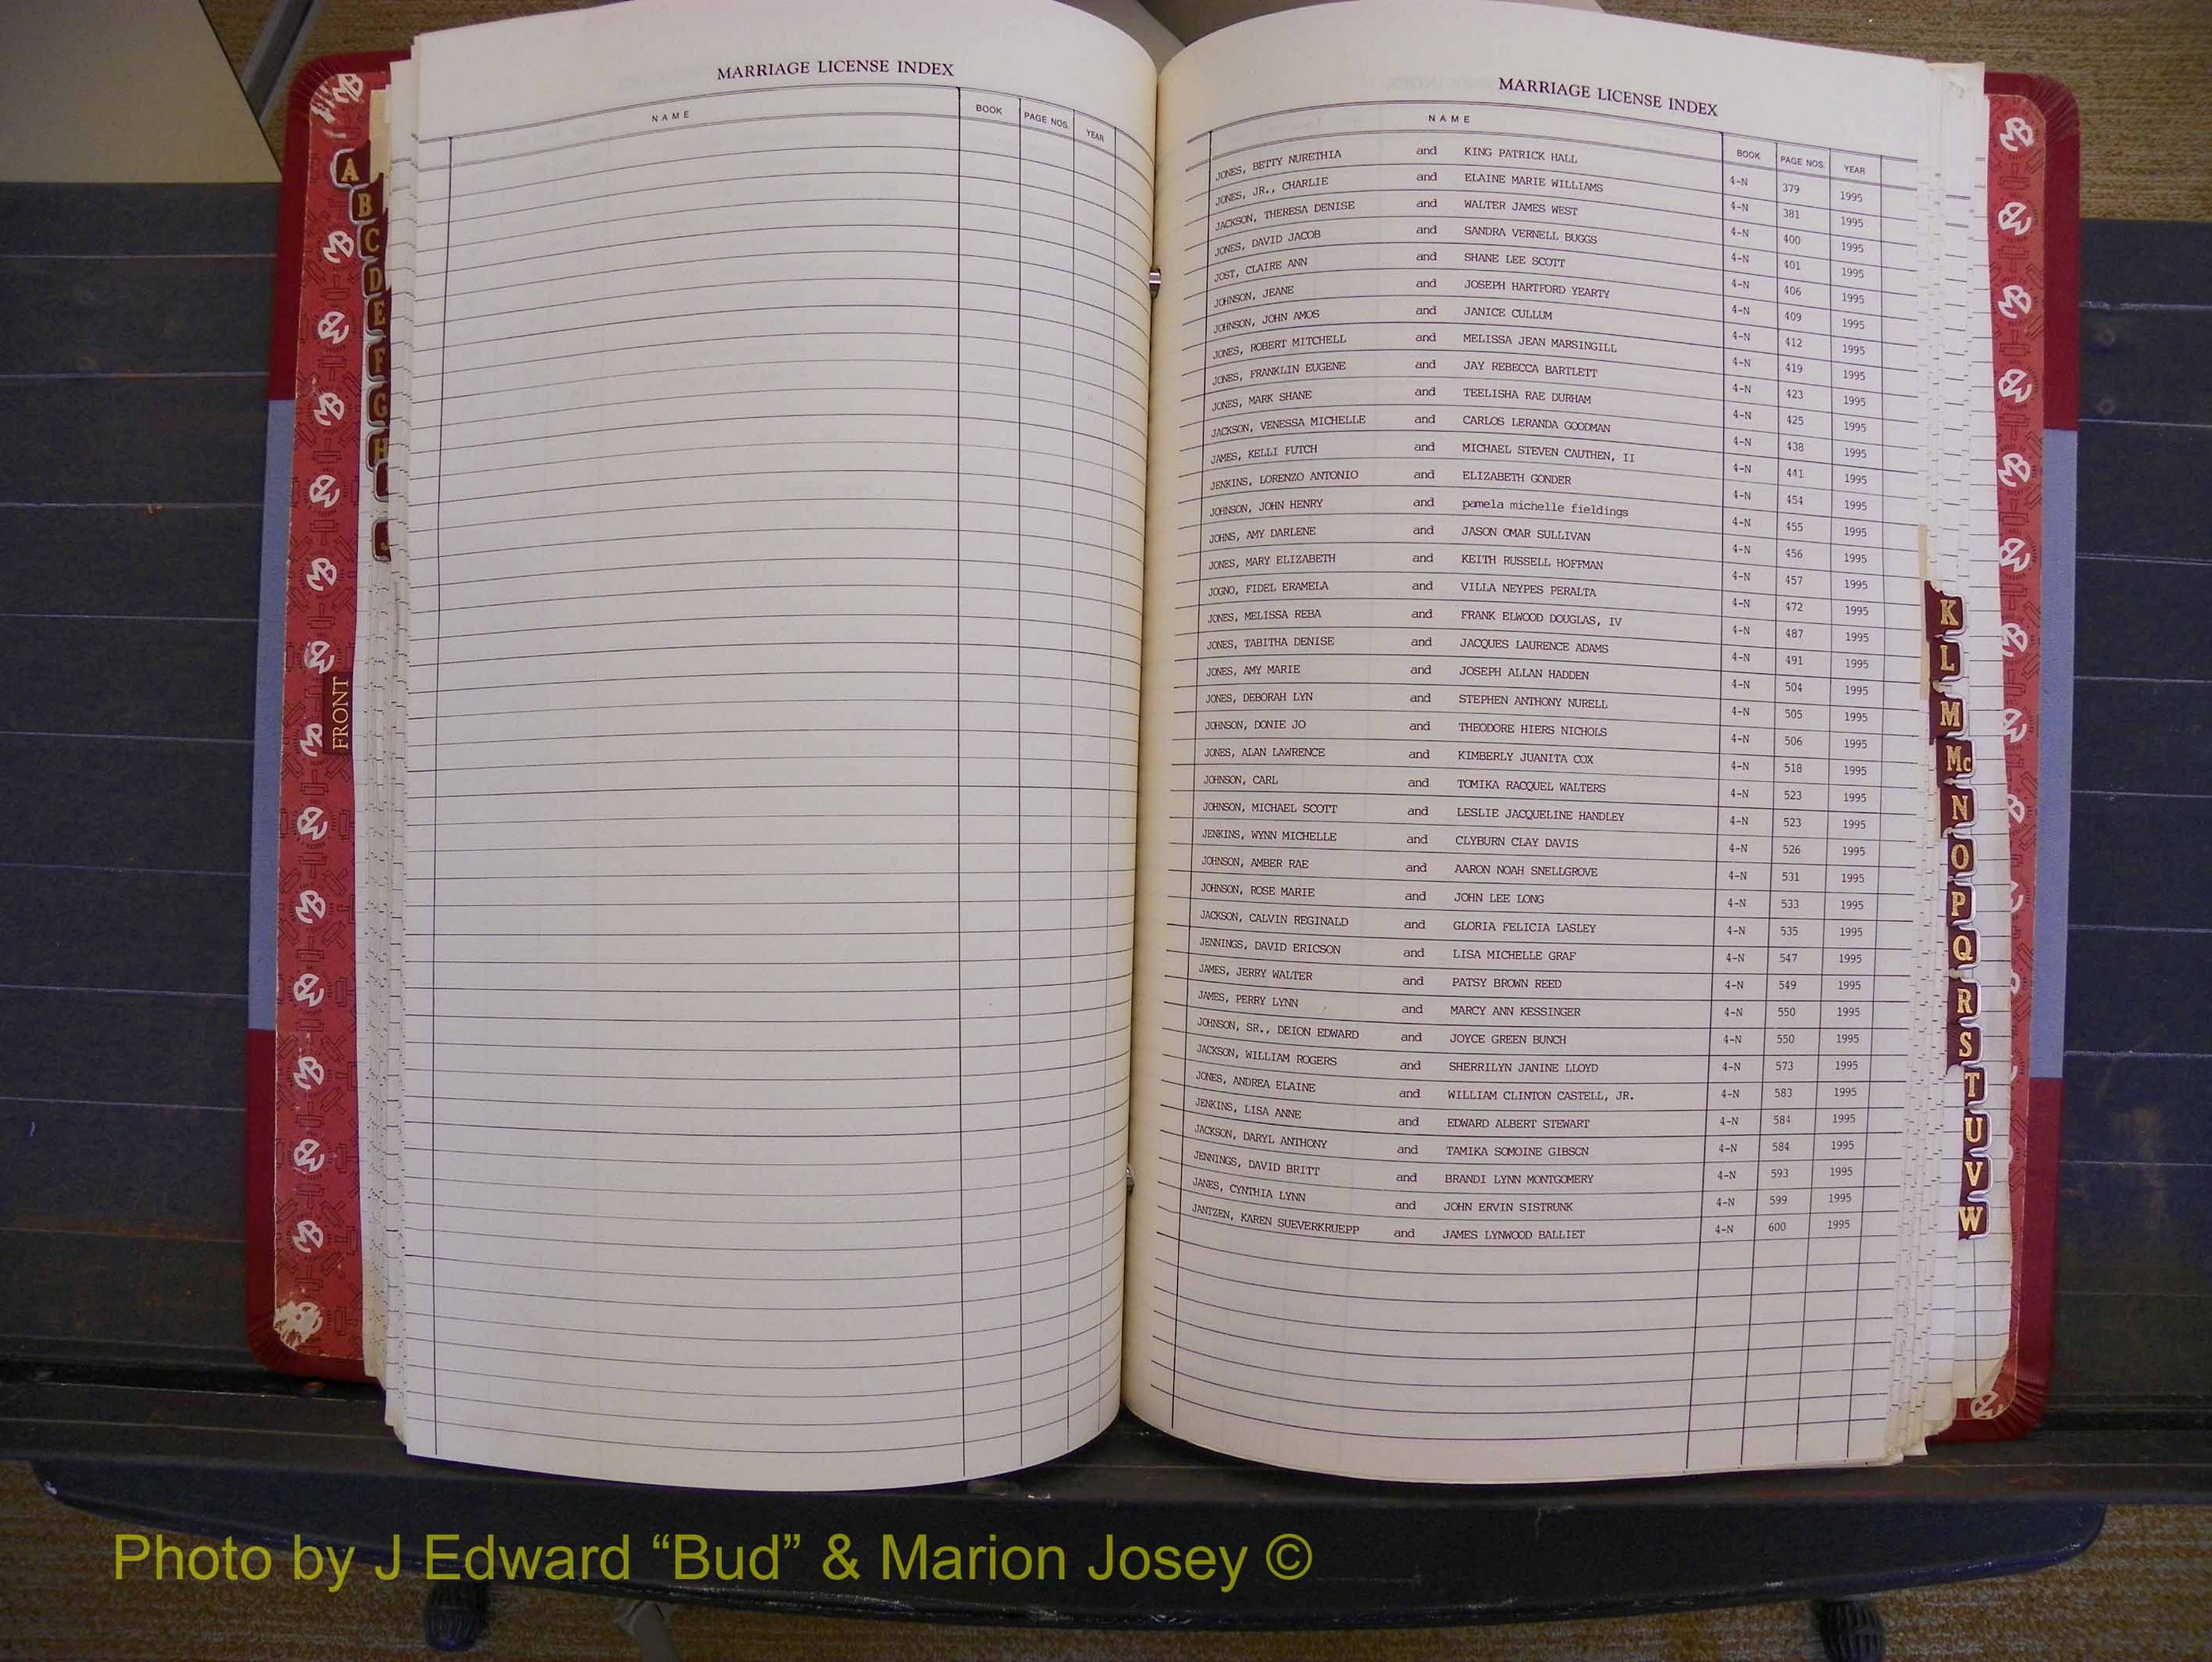 MARRIAGE LICENSE INDEX
NAME BOOK PAGE NOS. YEAR
MARRIAGE LICENSE INDEX
NAME BOOK PAGE NOS. YEAR
JONES, BETTY NURETHIA and KING PATRICK HALL 4-N 379 1995
JONES, JR., CHARLIE and ELAINE MARIE WILLIAMS 4-N 381 1995
JACKSON, THERESA DENISE and WALTER JAMES WEST 4-N 400 1995
JONES, DAVID JACOB and SANDRA VERNELL BUGGS 4-N 401 1995
JOST, CLAIRE ANN and SHANE LEE SCOTT 4-N 406 1995
JOHNSON, JEANE and JOSEPH HARTFORD YEARTY 4-N 409 1995
JOHNSON, JOHN AMOS and JANICE CULLUM 4-N 412 1995
JONES, ROBERT MITCHELL and MELISSA JEAN MARSINGILL 4-N 419 1995
JONES, FRANKLIN EUGENE and JAY REBECCA BARTLETT 4-N 423 1995
JONES, MARK SHANE and TEELISHA RAE DURHAM 4-N 425 1995
JACKSON, VENESSA MICHELLE and CARLOS LERANDA GOODMAN 4-N 438 1995
JAMES, KELLI FUTCH and MICHAEL STEVEN CAUTHEN, II 4-N 441 1995
JENKINS, LORENZO ANTONIO and ELIZABETH GONDER 4-N 454 1995
JOHNSON, JOHN HENRY and pamela michelle fieldings 4-N 455 1995
JOHNS, AMY DARLENE and JASON OMAR SULLIVAN 4-N 456 1995
JONES, MARY ELIZABETH and KEITH RUSSELL HOFFMAN 4-N 457 1995
JOGNO, FIDEL ERAMELA and VILLA NEYPES PERALTA 4-N 472 1995
JONES, MELISSA REBA and FRANK ELWOOD DOUGLAS, IV 4-N 487 1995
JONES, TABITHA DENISE and JACQUES LAURENCE ADAMS 4-N 491 1995
JONES, AMY MARIE and JOSEPH ALLAN HADDEN 4-N 504 1995
JONES, DEBORAH LYN and STEPHEN ANTHONY NURELL 4-N 505 1995
JOHNSON, DONIE JO and THEODORE HIERS NICHOLS 4-N 506 1995
JONES, ALAN LAWRENCE and KIMBERLY JUANITA COX 4-N 518 1995
JOHNSON, CARL and TOMIKA RACQUEL WALTERS 4-N 523 1995
JOHNSON, MICHAEL SCOTT and LESLIE JACQUELINE HANDLEY 4-N 523 1995
JENKINS, WYNN MICHELLE and CLYBURN CLAY DAVIS 4-N 526 1995
JOHNSON, AMBER RAE and AARON NOAH SNELLGROVE 4-N 531 1995
JOHNSON, ROSE MARIE and JOHN LEE LONG 4-N 533 1995
JACKSON, CALVIN REGINALD and GLORIA FELICIA LASLEY 4-N 535 1995
JENNINGS, DAVID ERICSON and LISA MICHELLE GRAF 4-N 547 1995
JAMES, JERRY WALTER and PATSY BROWN REED 4-N 549 1995
JAMES, PERRY LYNN and MARCY ANN KESSINGER 4-N 550 1995
JOHNSON, SR., DEION EDWARD and JOYCE GREEN BUNCH 4-N 550 1995
JACKSON, WILLIAM ROGERS and SHERRILYN JANINE LLOYD 4-N 573 1995
JONES, ANDREA ELAINE and WILLIAM CLINTON CASTELL, JR. 4-N 583 1995
JENKINS, LISA ANNE and EDWARD ALBERT STEWART 4-N 584 1995
JACKSON, DARYL ANTHONY and TAMIKA SOMOINE GIBSON 4-N 584 1995
JENNINGS, DAVID BRITT and BRANDI LYNN MONTGOMERY 4-N 593 1995
JANES, CYNTHIA LYNN and JOHN ERVIN SISTRUNK 4-N 599 1995
JANTZEN, KAREN SUEVERKRUEPP and JAMES LYNWOOD BALLIET 4-N 600 1995
A
B
C
D
E
F
G
H
FRONT
K
L
M
Mc
N
O
P
Q
R
S
T
U
V
W
Photo by J Edward “Bud” & Marion Josey ©